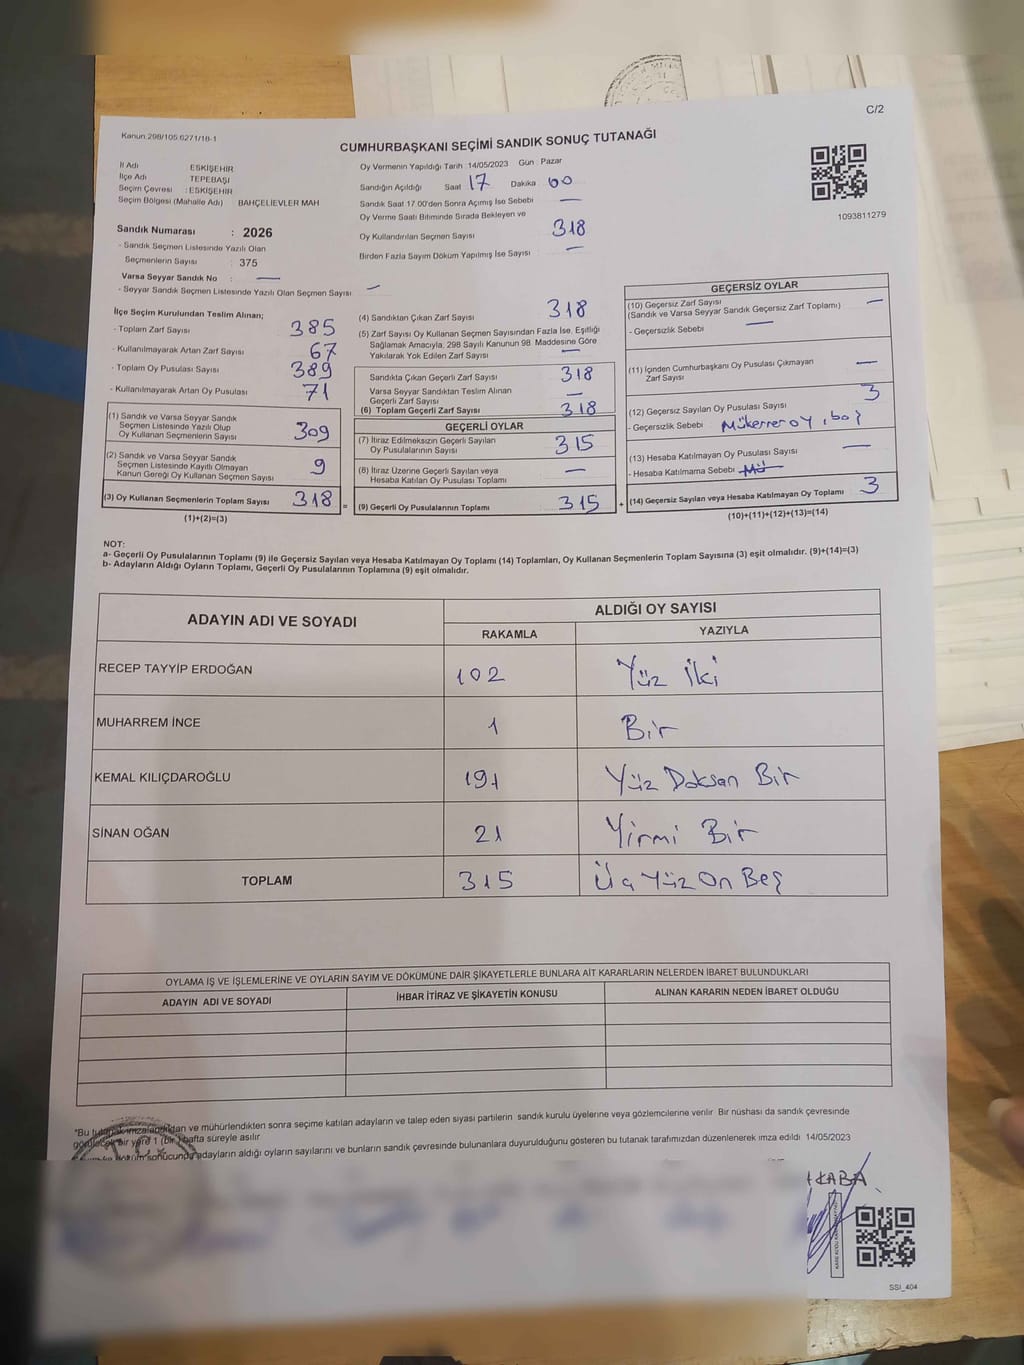 C/2
Kanun 298/105 6271/18-1
CUMHURBAŞKANI SEÇİMİ SANDIK SONUÇ TUTANAĞI
İl Adı ESKİŞEHİR
İlçe Adı TEPEBAŞI
Seçim Çevresi : ESKİŞEHİR
Seçim Bölgesi (Mahalle Adı) BAHÇELİEVLER MAH
Sandık Numarası : 2026
- Sandık Seçmen Listesinde Yazılı Olan
Seçmenlerin Sayısı : 375
Varsa Seyyar Sandık No : —
- Seyyar Sandık Seçmen Listesinde Yazılı Olan Seçmen Sayısı: —
Oy Vermenin Yapıldığı Tarih : 14/05/2023 Gün : Pazar
Sandığın Açıldığı Saat 17 Dakika 00
Sandık Saat 17.00'den Sonra Açımış İse Sebebi —
Oy Verme Saati Bitiminde Sırada Bekleyen ve
Oy Kullandırılan Seçmen Sayısı 318
Birden Fazla Sayım Döküm Yapılmış İse Sayısı —
1093811279
İlçe Seçim Kurulundan Teslim Alınan;
- Toplam Zarf Sayısı 385
- Kullanılmayarak Artan Zarf Sayısı 67
- Toplam Oy Pusulası Sayısı 389
- Kullanılmayarak Artan Oy Pusulası 71
(1) Sandık ve Varsa Seyyar Sandık
Seçmen Listesinde Yazılı Olup
Oy Kullanan Seçmenlerin Sayısı 309
(2) Sandık ve Varsa Seyyar Sandık
Seçmen Listesinde Kayıtlı Olmayan
Kanun Gereği Oy Kullanan Seçmen Sayısı 9
(3) Oy Kullanan Seçmenlerin Toplam Sayısı 318 =
(1)+(2)=(3)
(4) Sandıktan Çıkan Zarf Sayısı 318
(5) Zarf Sayısı Oy Kullanan Seçmen Sayısından Fazla İse, Eşitliği
Sağlamak Amacıyla, 298 Sayılı Kanunun 98. Maddesine Göre
Yakılarak Yok Edilen Zarf Sayısı —
Sandıkta Çıkan Geçerli Zarf Sayısı 318
Varsa Seyyar Sandıktan Teslim Alınan
Geçerli Zarf Sayısı —
(6) Toplam Geçerli Zarf Sayısı 318
GEÇERLİ OYLAR
(7) İtiraz Edilmeksizin Geçerli Sayılan
Oy Pusulalarının Sayısı 315
(8) İtiraz Üzerine Geçerli Sayılan veya
Hesaba Katılan Oy Pusulası Toplamı —
(9) Geçerli Oy Pusulalarının Toplamı 315 +
GEÇERSİZ OYLAR
(10) Geçersiz Zarf Sayısı —
(Sandık ve Varsa Seyyar Sandık Geçersiz Zarf Toplamı)
- Geçersizlik Sebebi —
(11) İçinden Cumhurbaşkanı Oy Pusulası Çıkmayan
Zarf Sayısı —
(12) Geçersiz Sayılan Oy Pusulası Sayısı 3
- Geçersizlik Sebebi Mükerrer oy, boş
(13) Hesaba Katılmayan Oy Pusulası Sayısı —
- Hesaba Katılmama Sebebi Mü
(14) Geçersiz Sayılan veya Hesaba Katılmayan Oy Toplamı 3
(10)+(11)+(12)+(13)=(14)
NOT:
a- Geçerli Oy Pusulalarının Toplamı (9) ile Geçersiz Sayılan veya Hesaba Katılmayan Oy Toplamı (14) Toplamları, Oy Kullanan Seçmenlerin Toplam Sayısına (3) eşit olmalıdır. (9)+(14)=(3)
b- Adayların Aldığı Oyların Toplamı, Geçerli Oy Pusulalarının Toplamına (9) eşit olmalıdır.
ADAYIN ADI VE SOYADI ALDIĞI OY SAYISI
RAKAMLA YAZIYLA
RECEP TAYYİP ERDOĞAN 102 Yüz İki
MUHARREM İNCE 1 Bir
KEMAL KILIÇDAROĞLU 191 Yüz Doksan Bir
SİNAN OĞAN 21 Yirmi Bir
TOPLAM 315 Üç Yüz On Beş
OYLAMA İŞ VE İŞLEMLERİNE VE OYLARIN SAYIM VE DÖKÜMÜNE DAİR ŞİKAYETLERLE BUNLARA AİT KARARLARIN NELERDEN İBARET BULUNDUKLARI
ADAYIN ADI VE SOYADI İHBAR İTİRAZ VE ŞİKAYETİN KONUSU ALINAN KARARIN NEDEN İBARET OLDUĞU
*Bu tutanak imzalandıktan ve mühürlendikten sonra seçime katılan adayların ve talep eden siyasi partilerin sandık kurulu üyelerine veya gözlemcilerine verilir. Bir nüshası da sandık çevresinde
görülecek bir yere 1 (bir) hafta süreyle asılır.
sonucunda adayların aldığı oyların sayılarını ve bunların sandık çevresinde bulunanlara duyurulduğunu gösteren bu tutanak tarafımızdan düzenlenerek imza edildi 14/05/2023
KABA
SSI_404